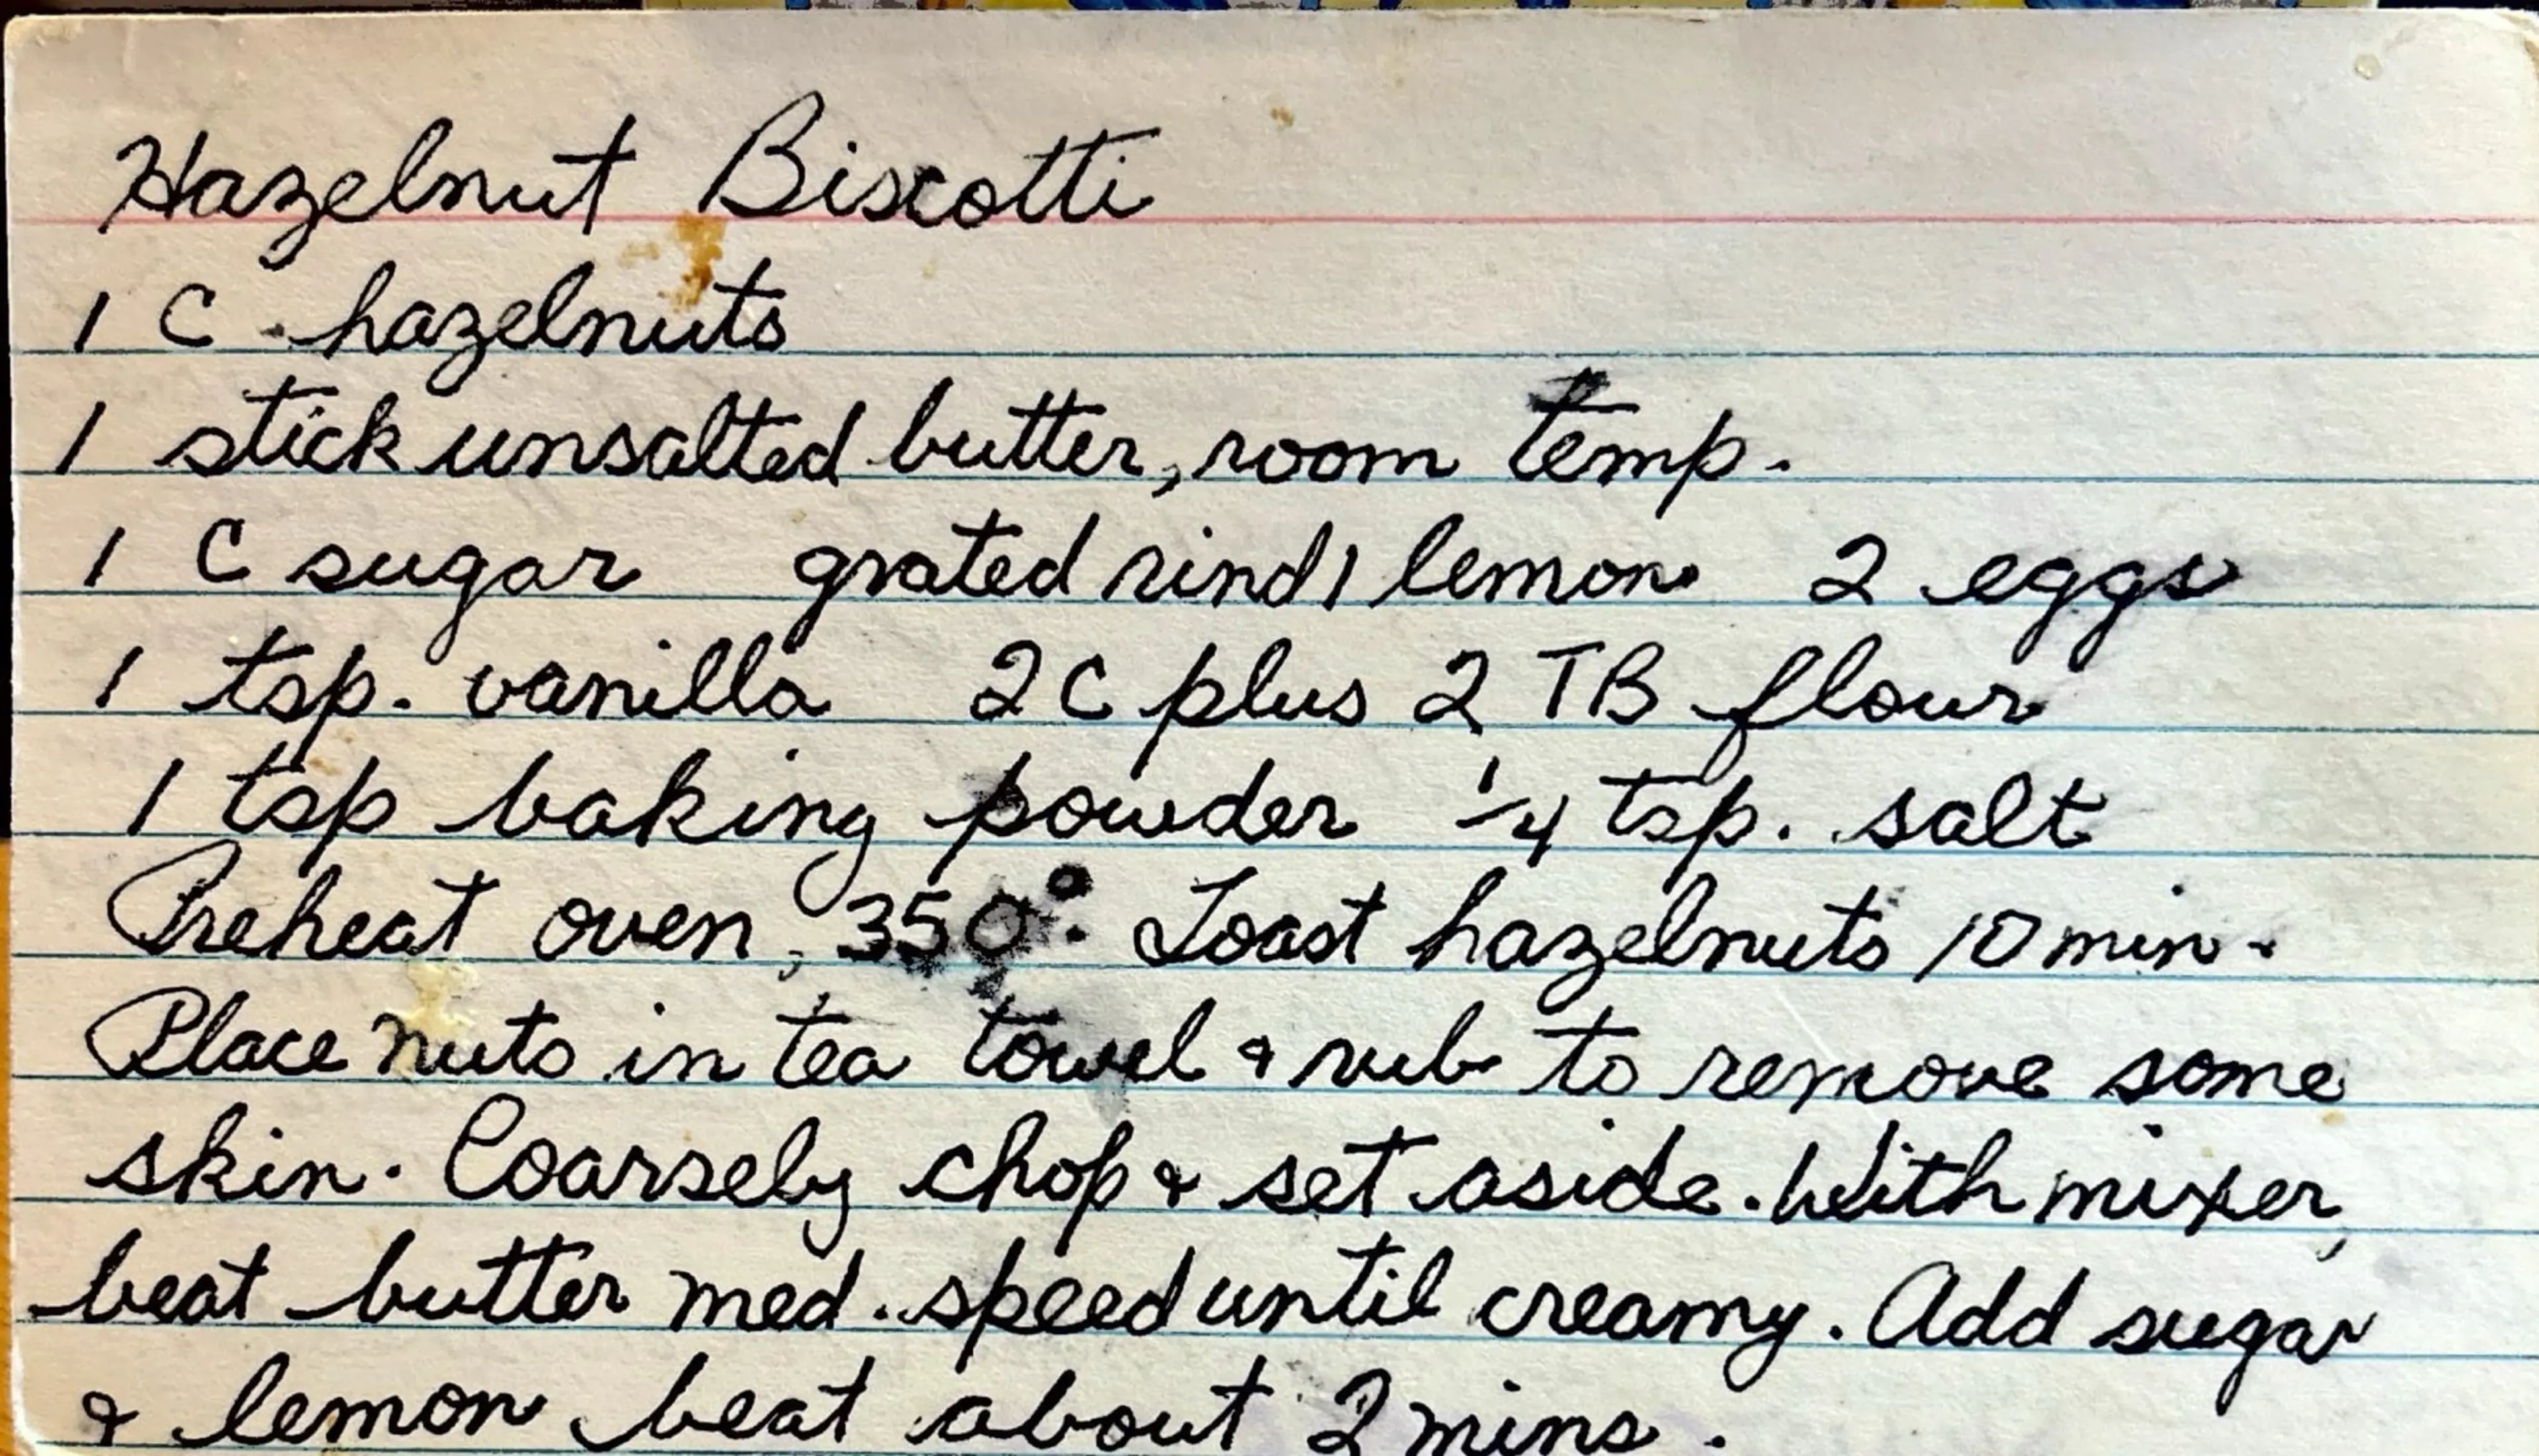 Hazelnut Biscotti
1 C hazelnuts
1 stick unsalted butter, room temp.
1 C sugar grated rind 1 lemon 2 eggs
1 tsp. vanilla 2 C plus 2 TB flour
1 tsp baking powder 1/4 tsp. salt
Preheat oven, 350°. Toast hazelnuts 10 min.
Place nuts in tea towel & rub to remove some
skin. Coarsely chop & set aside. With mixer,
beat butter med. speed until creamy. Add sugar
& lemon beat about 2 mins.